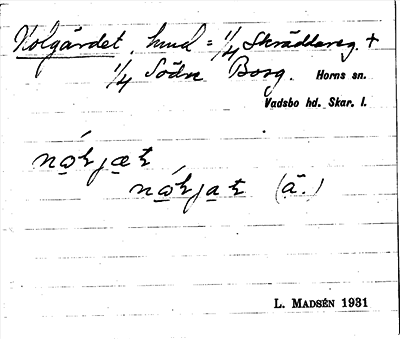 Kolgärdet, hmd = 1/4 Skräddareg. +
1/4 Södra Borg. Horns sn.
Vadsbo hd. Skar. l.
(ä.)
L. MADSÉN 1931